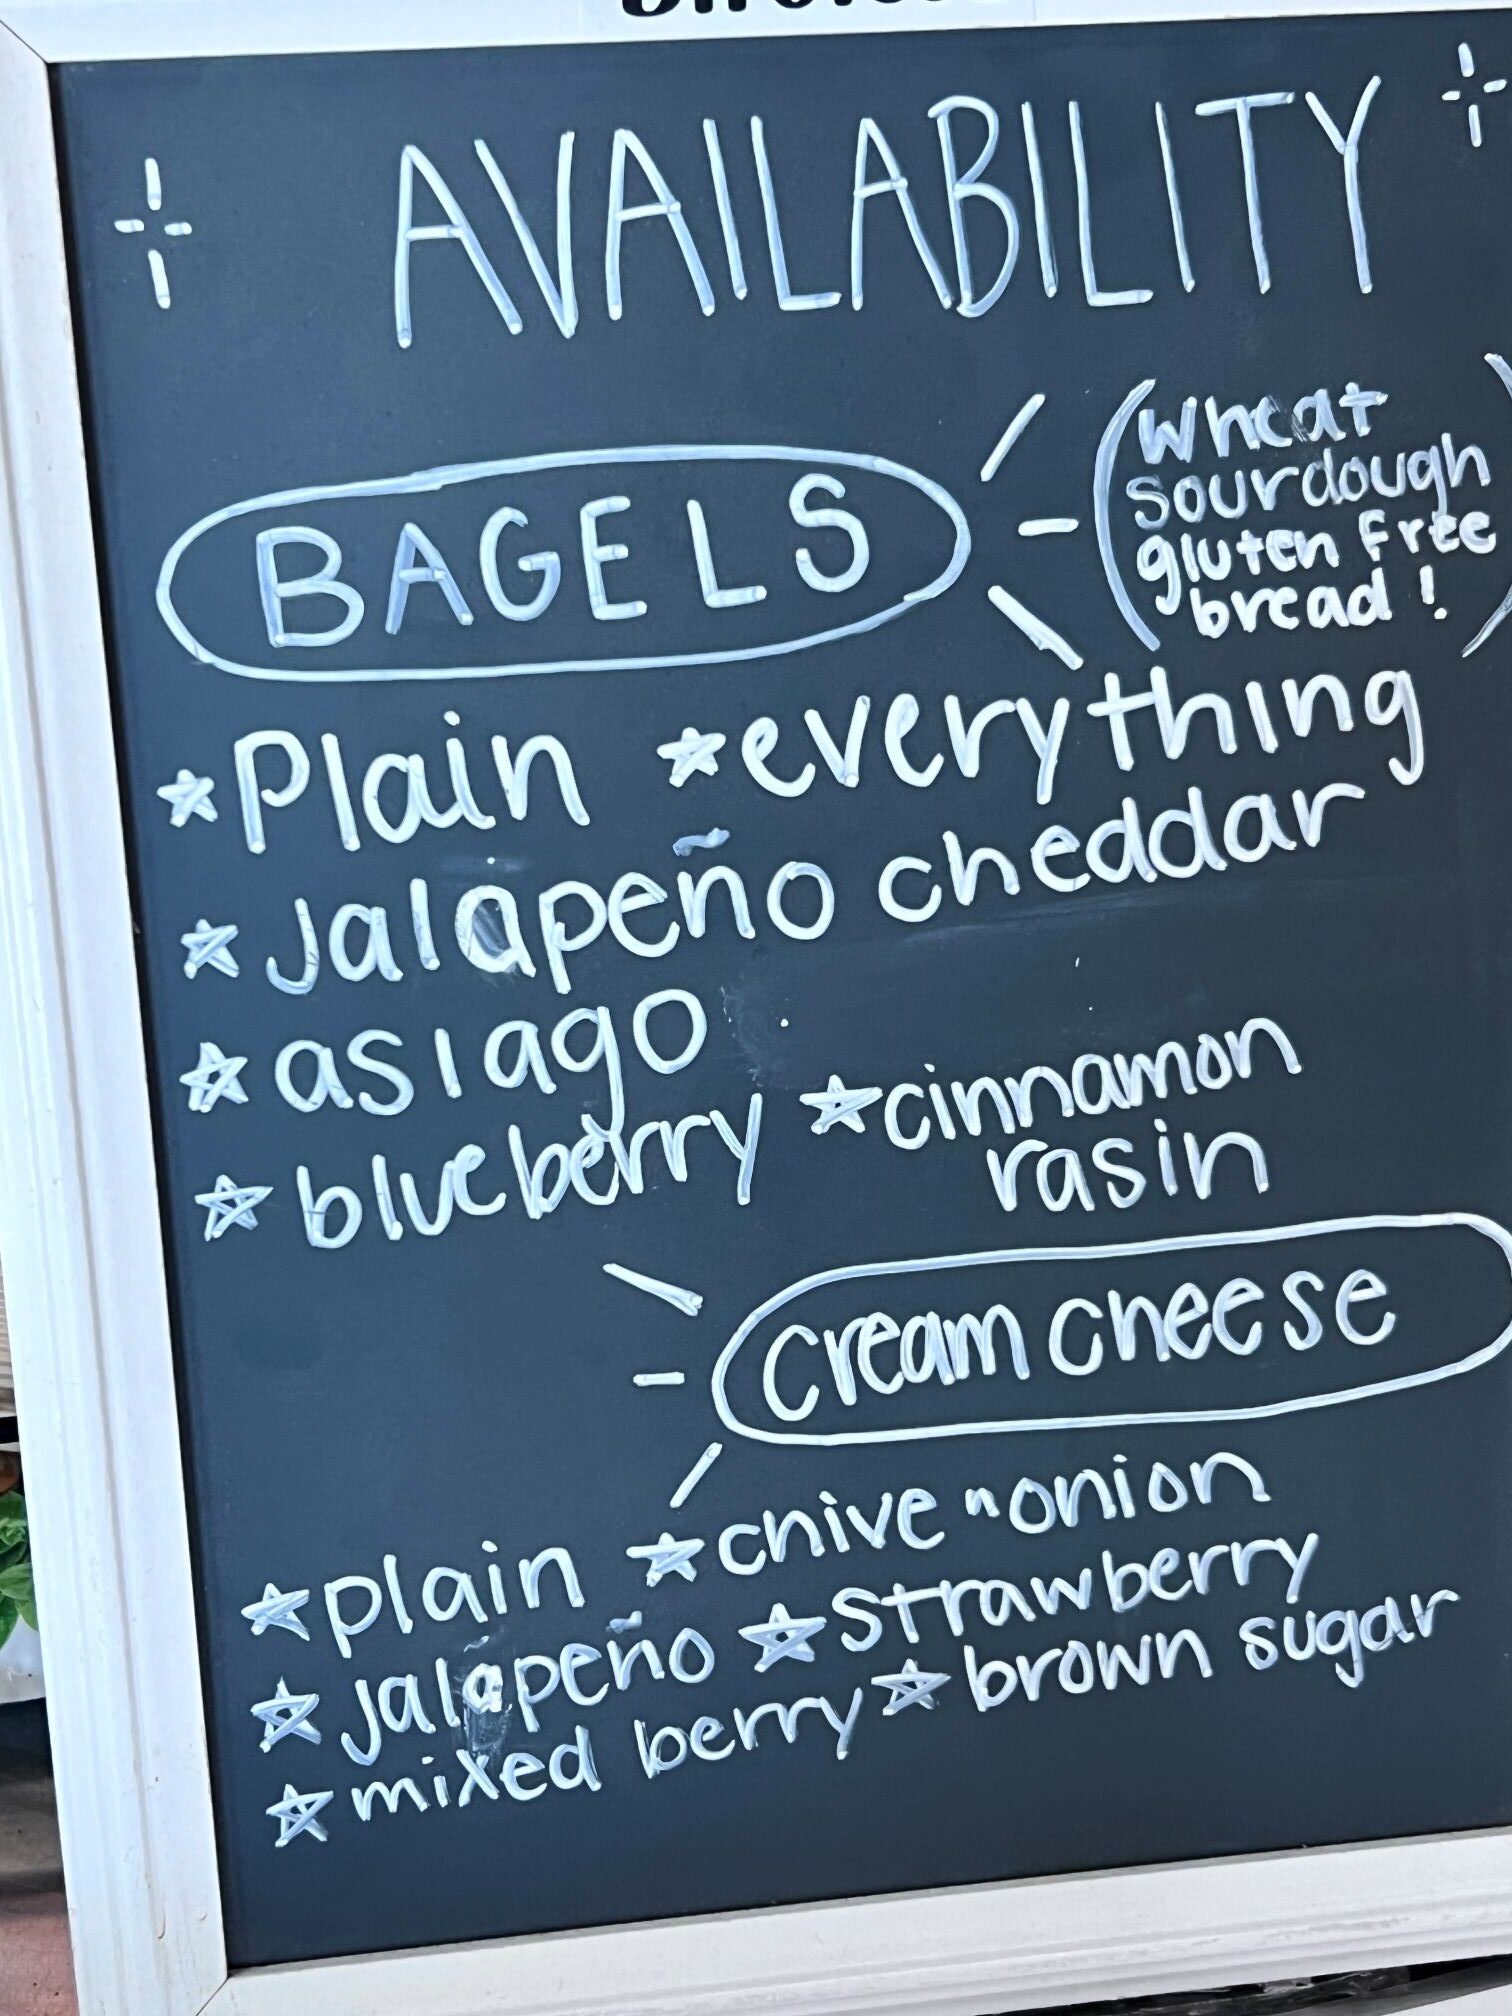 AVAILABILITY
BAGELS
(Wheat
sourdough
gluten free
bread!)
Plain everything
Jalapeño cheddar
asiago
blueberry cinnamon
rasin
cream cheese
plain chive "onion
jalapeño strawberry
mixed berry brown sugar